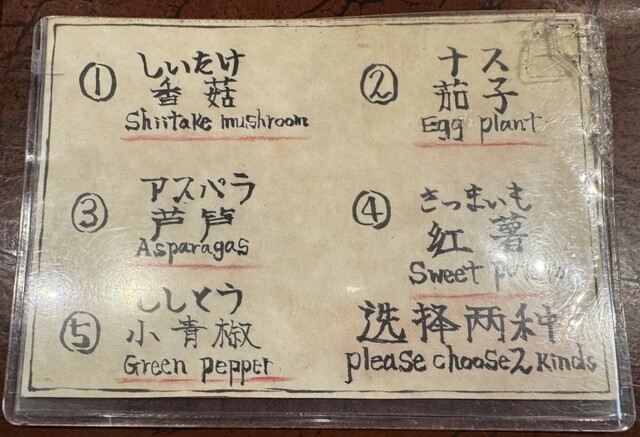 ① しいたけ
香菇
Shiitake mushroom
② ナス
茄子
Egg plant
③ アスパラ
芦笋
Asparagas
④ さつまいも
红薯
Sweet
⑤ ししとう
小青椒
Green pepper
选择两种
please choose 2 kinds